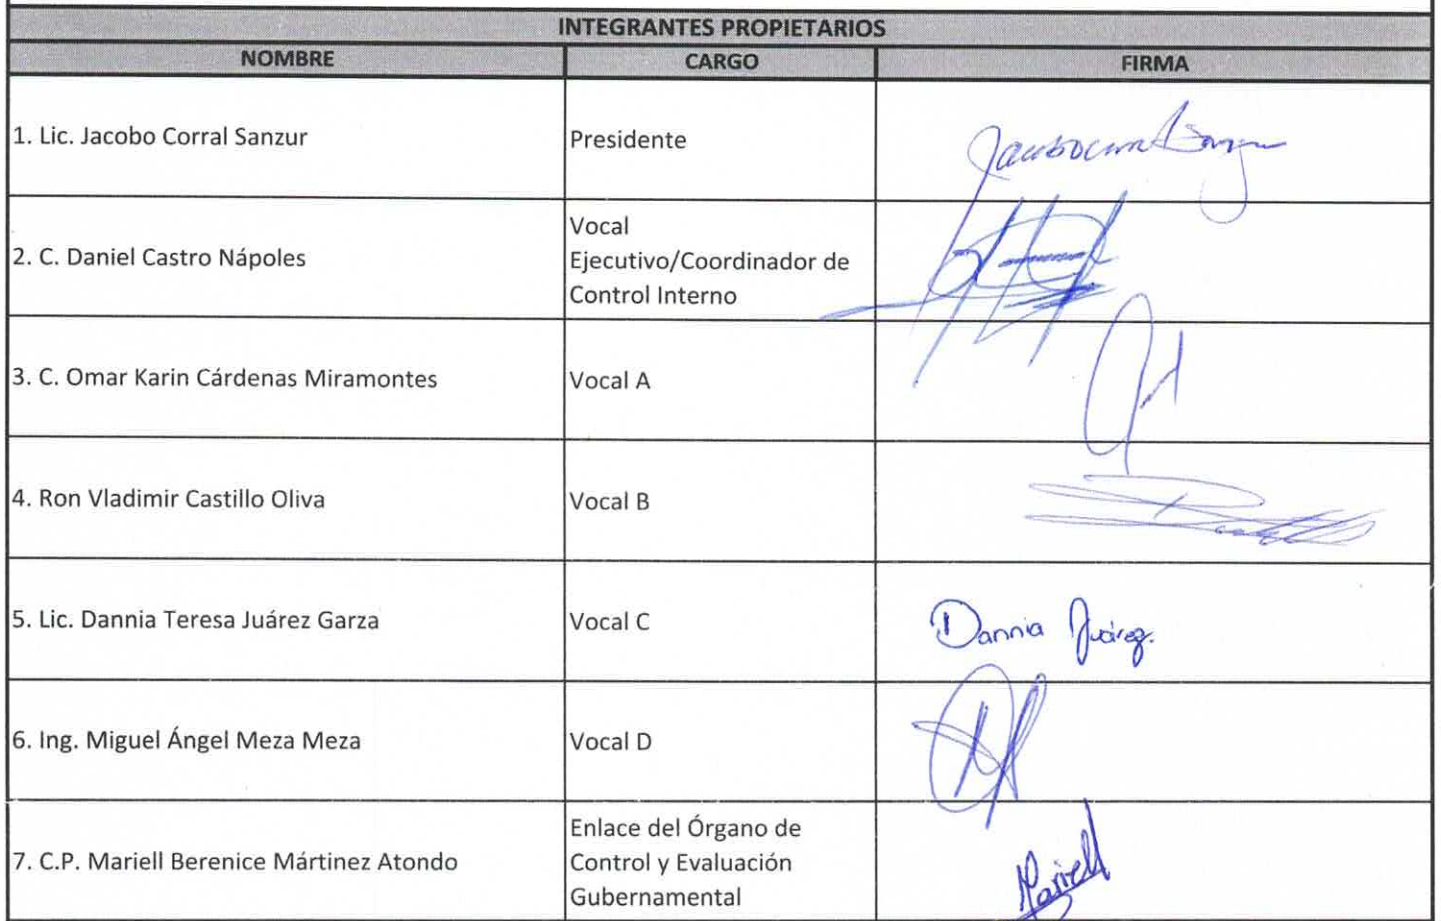 INTEGRANTES PROPIETARIOS
NOMBRE CARGO FIRMA
1. Lic. Jacobo Corral Sanzur Presidente
2. C. Daniel Castro Nápoles Vocal
Ejecutivo/Coordinador de
Control Interno
3. C. Omar Karin Cárdenas Miramontes Vocal A
4. Ron Vladimir Castillo Oliva Vocal B
5. Lic. Dannia Teresa Juárez Garza Vocal C Dannia Juárez.
6. Ing. Miguel Ángel Meza Meza Vocal D
7. C.P. Mariell Berenice Mártinez Atondo Enlace del Órgano de
Control y Evaluación
Gubernamental
Mariell